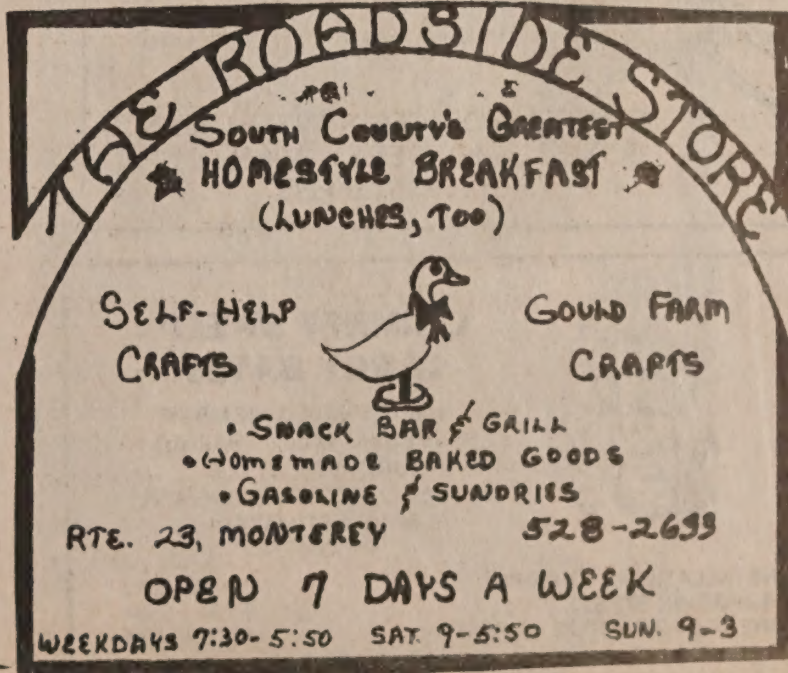 THE ROADSIDE STORE
SOUTH COUNTY'S GREATEST
HOMESTYLE BREAKFAST
(LUNCHES, TOO)
SELF-HELP
CRAFTS
GOULD FARM
CRAFTS
• SNACK BAR & GRILL
• HOMEMADE BAKED GOODS
• GASOLINE & SUNDRIES
RTE. 23, MONTEREY 528-2633
OPEN 7 DAYS A WEEK
WEEKDAYS 7:30-5:50 SAT. 9-5:50 SUN. 9-3